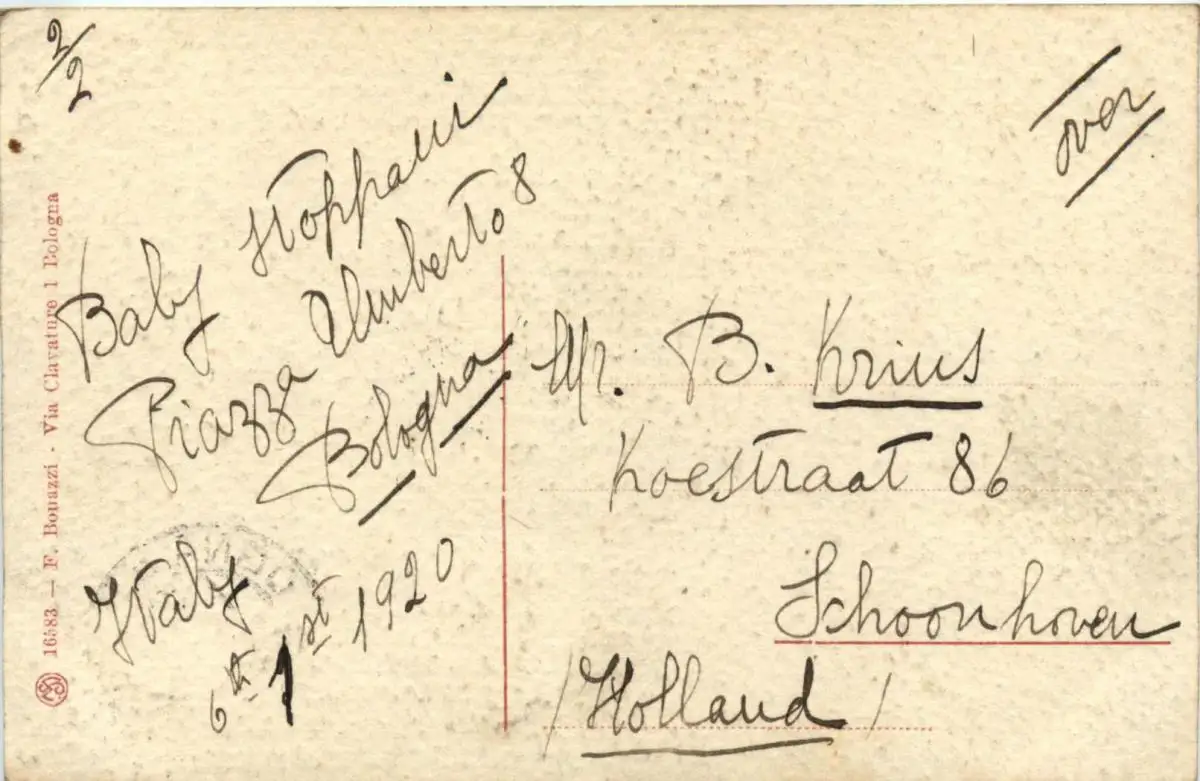 2/2
over
Baby Stoppani
Piazza Umberto 8
Bologna
Italy
6th 1st 1920
Mr. B. Krius
Koestraat 86
Schoonhoven
/Holland/
16583 — F. Bonazzi - Via Clavature 1 Bologna